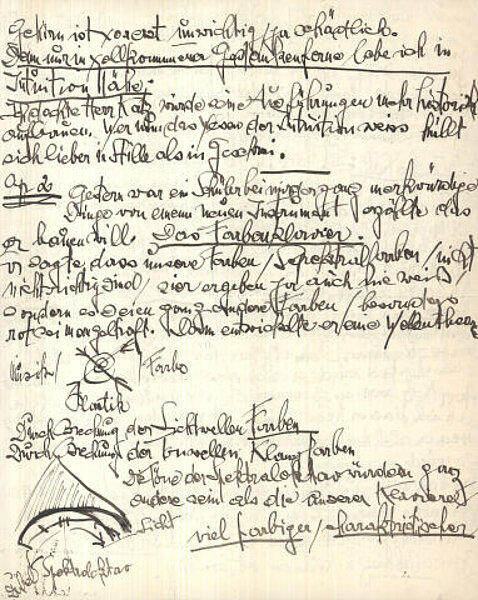 Gehirn ist vorerst unwichtig / ja schädlich.
Denn nur in vollkommener Gedankenferne lebe ich in
Intuition Nähe.
Herr würde seine Ausführungen mehr
aufbauen. Wer um das der Intuition weiss hüllt
sich lieber in Stille als in
Gestern war ein Schüler bei mir der ganz merkwürdige
Dinge von einem neuen Instrument erzählte das
er bauen will. Das Farbenklavier.
Er sagte dass unsere Farben / Spektralfarben / nicht
richtig sind / vier ergeben ja auch nie weiss /
sondern es seien ganz andere Farben / besonders
rot sei mangelhaft. Dann entwickelte er eine Wellentheorie
Musik / / Farbe
Plastik
Durch Brechung der Lichtwellen Farben
Durch Brechung der Klangfarben
die Töne der Spektraloktav würden ganz
andere sein als die unserer Klaviere
Licht
viel farbiger / charakteristischer
Spektraloktav